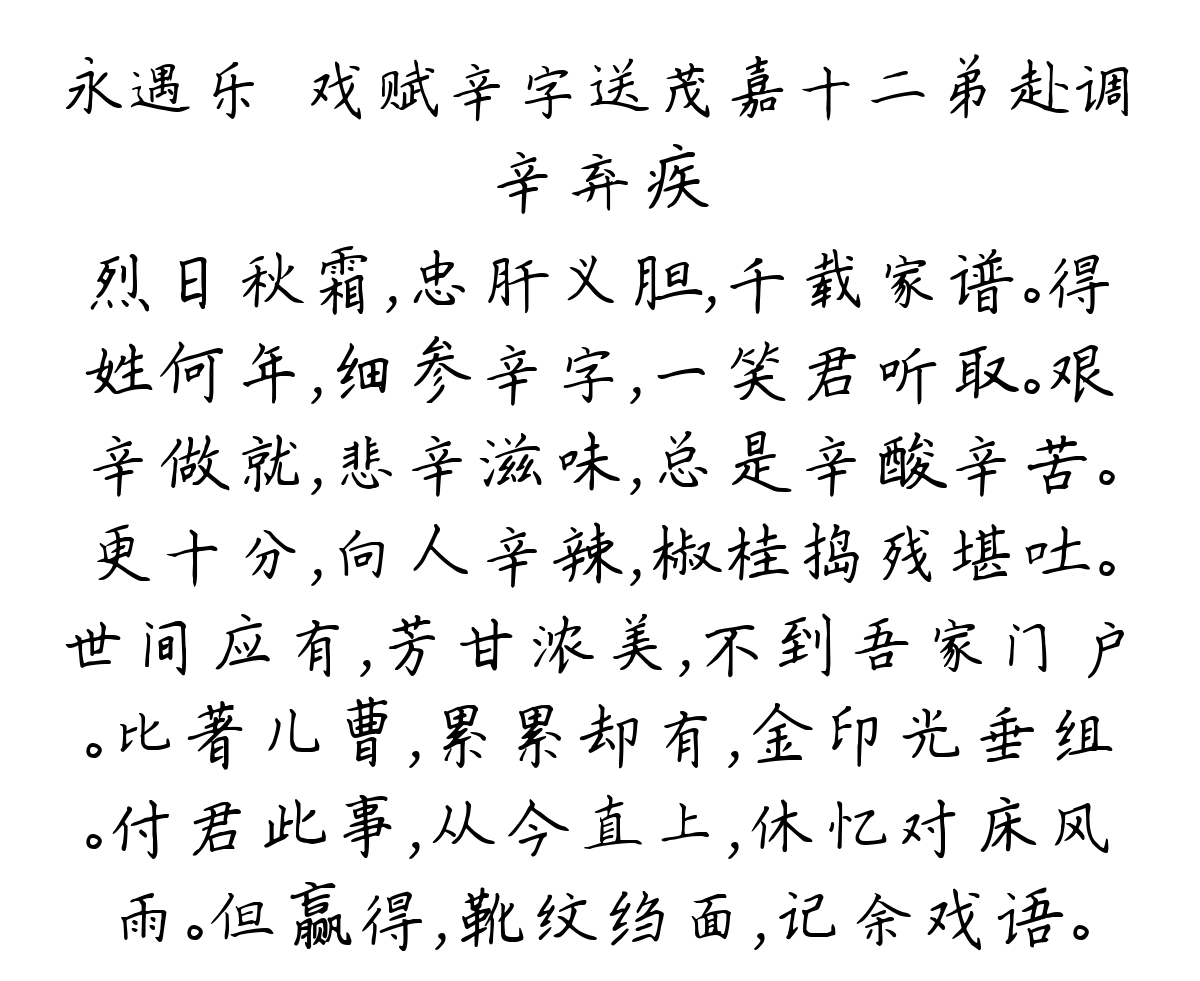 永遇乐 戏赋辛字送茂嘉十二弟赴调
辛弃疾
烈日秋霜,忠肝义胆,千载家谱。得
姓何年,细参辛字,一笑君听取。艰
辛做就,悲辛滋味,总是辛酸辛苦。
更十分,向人辛辣,椒桂捣残堪吐。
世间应有,芳甘浓美,不到吾家门户
。比著儿曹,累累却有,金印光垂组
。付君此事,从今直上,休忆对床风
雨。但赢得,靴纹绉面,记余戏语。